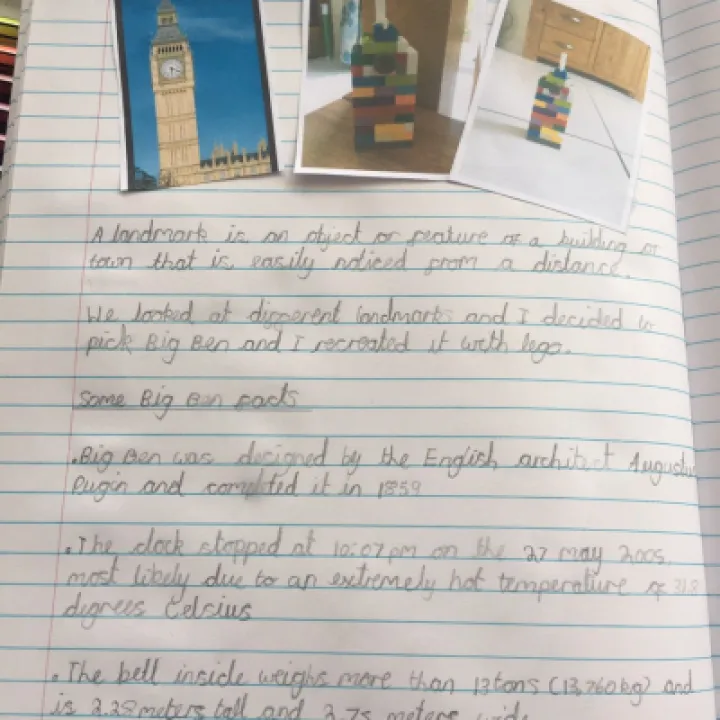 A landmark is an object or feature of a building or
town that is easily noticed from a distance.
We looked at different landmarks and I decided to
pick Big Ben and I recreated it with lego.
Some Big Ben facts
.Big Ben was designed by the English architect Augustus
Pugin and completed it in 1859
.The clock stopped at 10:07pm on the 27 may 2005,
most likely due to an extremely hot temperature of 31.8
digrees Celsius
.The bell inside weighs more than 13tons (13,760kg) and
is 2.28meters tall and 2.75 meters wide